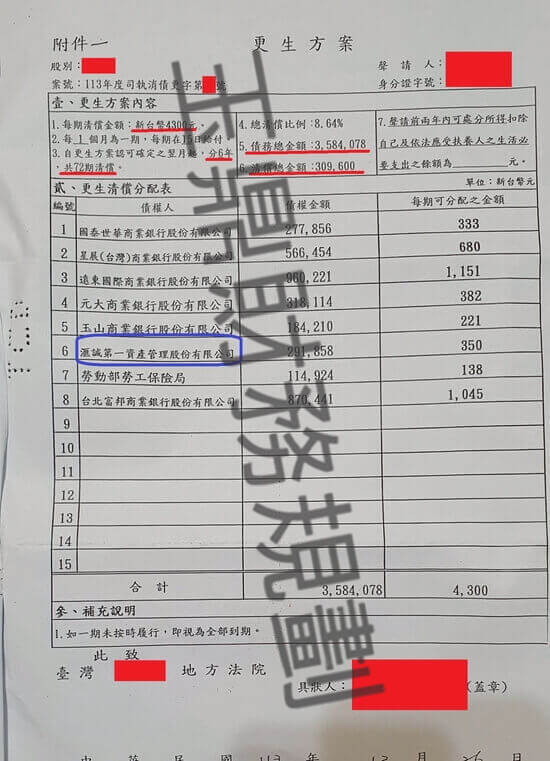 附件一
更生方案
股別:
聲請人:
案號:113年度司執消債更字第 號
身分證字號:
壹、更生方案內容
1.每期清償金額:新台幣4300元。
2.每1個月為一期,每期在15日給付。
3.自更生方案認可確定之翌月起,分6年,共72期清償。
4.總清償比例:8.64%
5.債務總金額:3,584,078
6.清償總金額:309,600
7.聲請前兩年內可處分所得扣除
自己及依法應受扶養人之生活必
要支出之餘額為 元。
貳、更生清償分配表
單位:新台幣元
編號 債權人 債權金額 每期可分配之金額
1 國泰世華商業銀行股份有限公司 277,856 333
2 星展(台灣)商業銀行股份有限公司 566,454 680
3 遠東國際商業銀行股份有限公司 960,221 1,151
4 元大商業銀行股份有限公司 318,114 382
5 玉山商業銀行股份有限公司 184,210 221
6 滙誠第一資產管理股份有限公司 291,858 350
7 勞動部勞工保險局 114,924 138
8 台北富邦商業銀行股份有限公司 870,441 1,045
9
10
11
12
13
14
15
合計 3,584,078 4,300
參、補充說明
1.如一期未按時履行,即視為全部到期。
此致
臺灣 地方法院
具狀人: (蓋章)
中華民國113年12月26日
玉鼎財務規劃